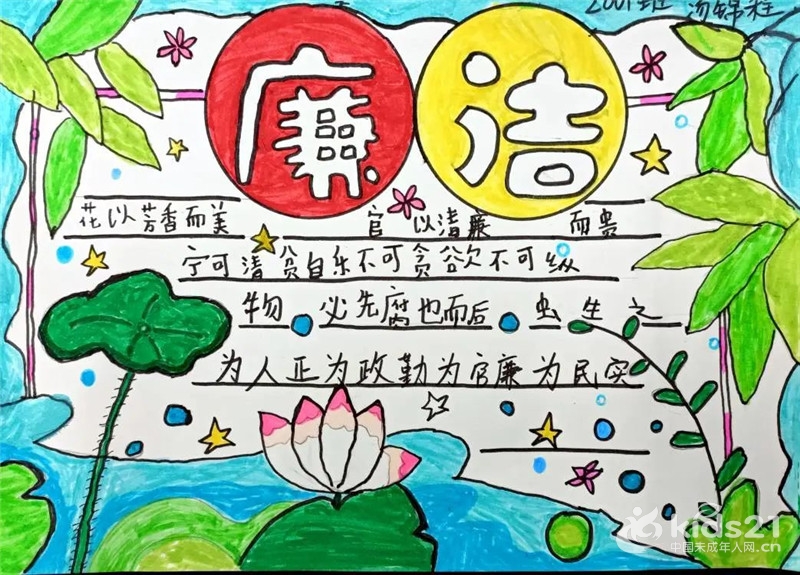 2001班 汤锦程
廉洁
花以芳香而美 官以清廉而贵
宁可清贫自乐不可贪欲不可纵
物必先腐也而后虫生之
为人正为政勤为官廉为民实
kids21
中国未成年人网.cn